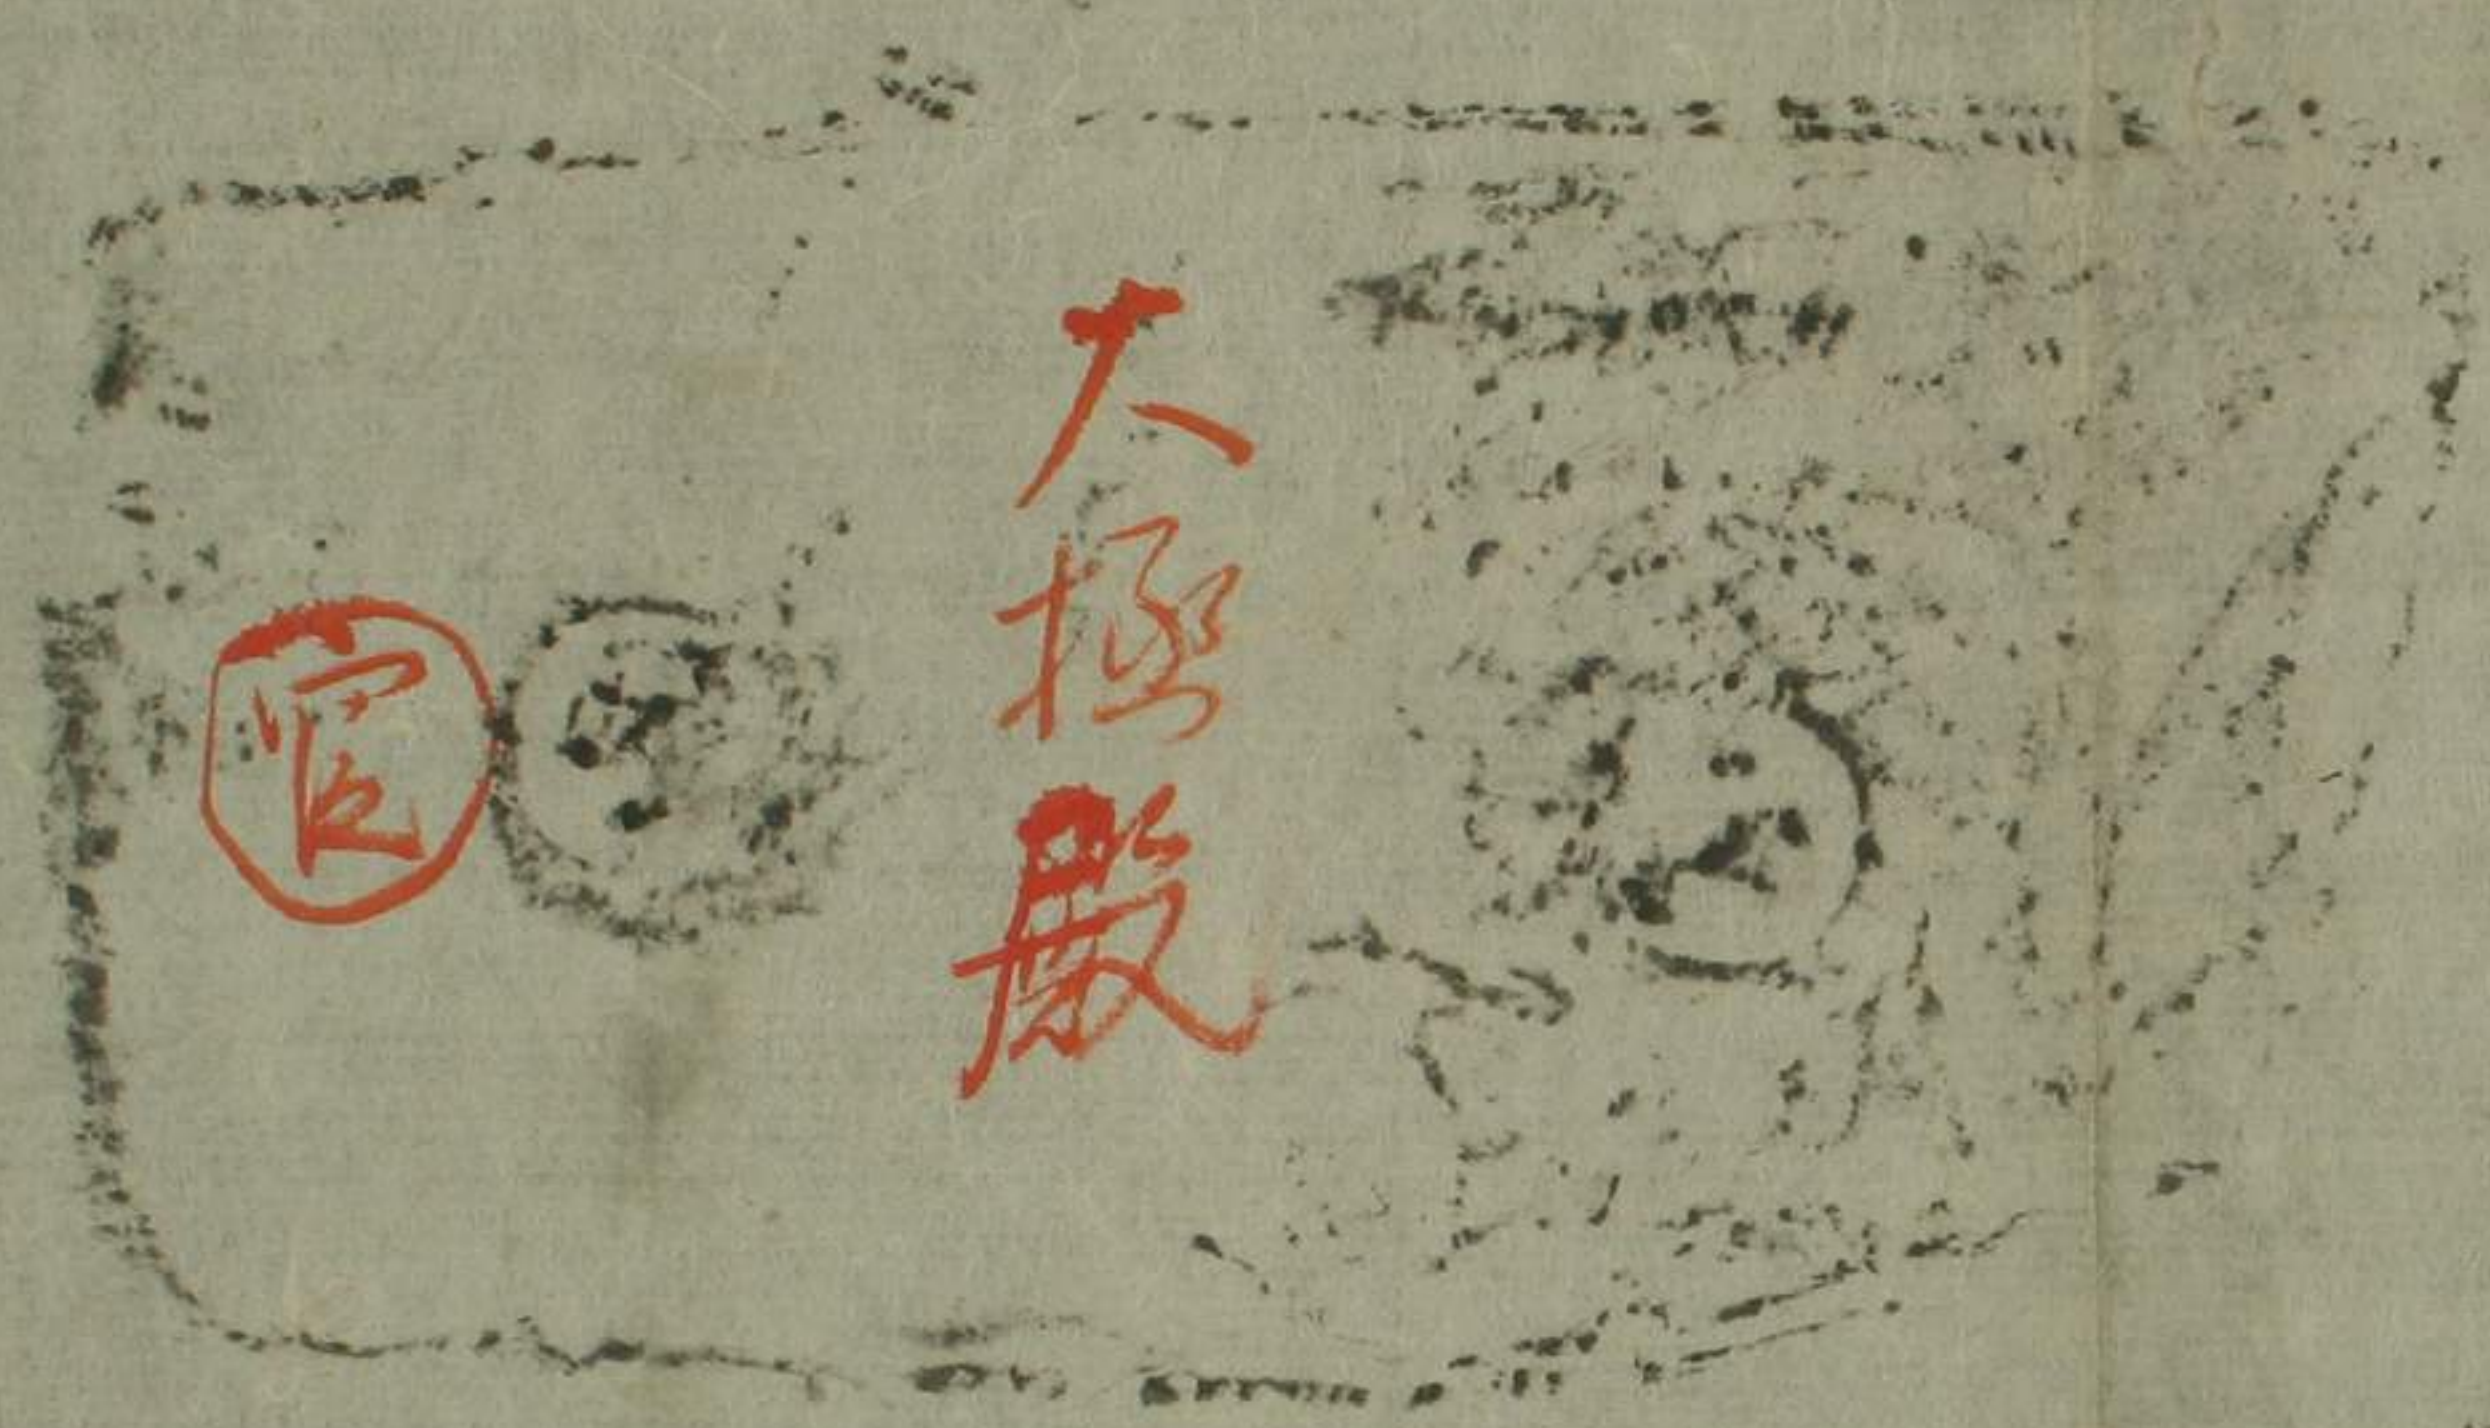 大極殿
官